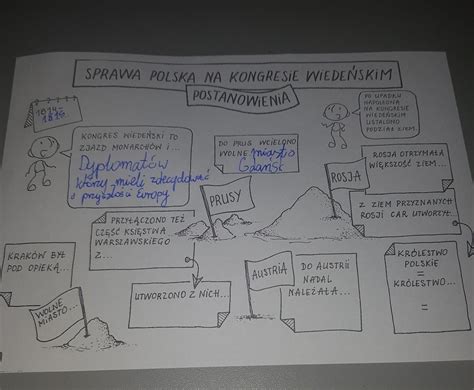 SPRAWA POLSKA NA KONGRESIE WIEDEŃSKIM
POSTANOWIENIA
1814-
1815
KONGRES WIEDEŃSKI TO
ZJAZD MONARCHÓW I...
Dyplomatów
którzy mieli zdecydować
o przyszłości Europy
DO PRUS WCIELONO
WOLNE miasto
Gdańsk
PO UPADKU
NAPOLEONA
NA KONGRESIE
WIEDEŃSKIM
USTALONO
PODZIAŁ ZIEM...
PRUSY
ROSJA
ROSJA OTRZYMAŁA
WIĘKSZOŚĆ ZIEM...
Z ZIEM PRZYZNANYCH
ROSJI CAR UTWORZYŁ...
PRZYŁĄCZONO TEŻ
CZĘŚĆ KSIĘSTWA
WARSZAWSKIEGO
Z...
KRAKÓW BYŁ
POD OPIEKĄ...
WOLNE
MIASTO...
UTWORZONO Z NICH...
AUSTRIA
DO AUSTRII
NADAL
NALEŻAŁA...
KRÓLESTWO
POLSKIE
=
KRÓLESTWO...
=